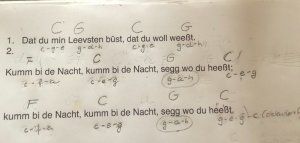 C G C G
1. Dat du min Leevsten büst, dat du woll weeßt.
2. c-g-e g-a-h c-g-e g-a-h
F C G C
Kumm bi de Nacht, kumm bi de Nacht, segg wo du heeßt;
c-f-a c-e-g g-a-h c-e-g
F C G C
kumm bi de Nacht, kumm bi de Nacht, segg wo du heeßt.
c-f-a c-e-g g-a-h g-e-g-c